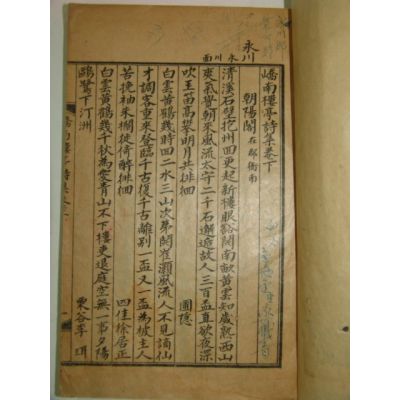 永川
永川面
嶠南樓亭詩集卷下
朝陽閣 在郡衙南
淸溪石壁抱州回更起新樓眼豁開南畝黃雲知歲熟西山
爽氣覺朝來風流太守二千石邂逅故人三百盃直欲夜深
吹玉笛高攀明月共徘徊 圃隱
白雲黃鶴幾時回二水三山次第開崔灝風流人不見謫仙
才調客重來登臨千古復千古離別一盃又一盃為被主人
苦挽袖朱欄徙倚醉徘徊 四佳徐居正
白雲黃鶴幾千秋為愛青山不下樓吏退庭空無一事夕陽
鷗鷺下汀洲 東谷李